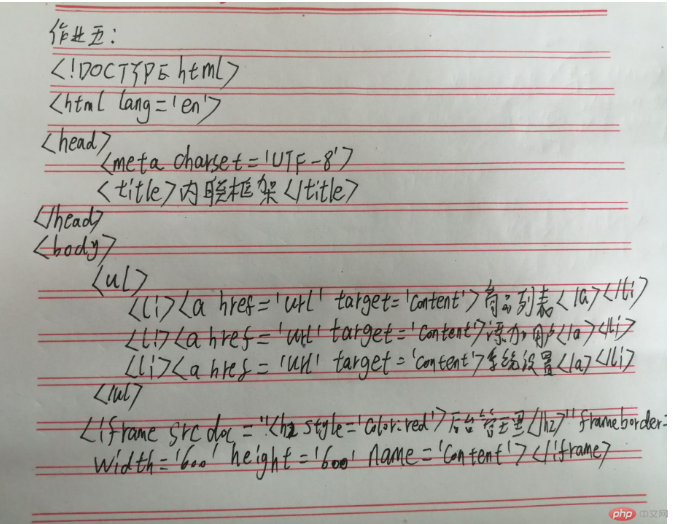 作业五:
<!DOCTYPE html>
<html lang='en'>
<head>
<meta charset='UTF-8'>
<title>内联框架</title>
</head>
<body>
<ul>
<li><a href='url' target='content'>商品列表</a></li>
<li><a href='url' target='content'>添加用户</a></li>
<li><a href='url' target='content'>系统设置</a></li>
</ul>
<iframe srcdoc="<h2 style='color:red'>后台管理</h2>" frameborder=
width='600' height='600' name='content'></iframe>
php 中文网